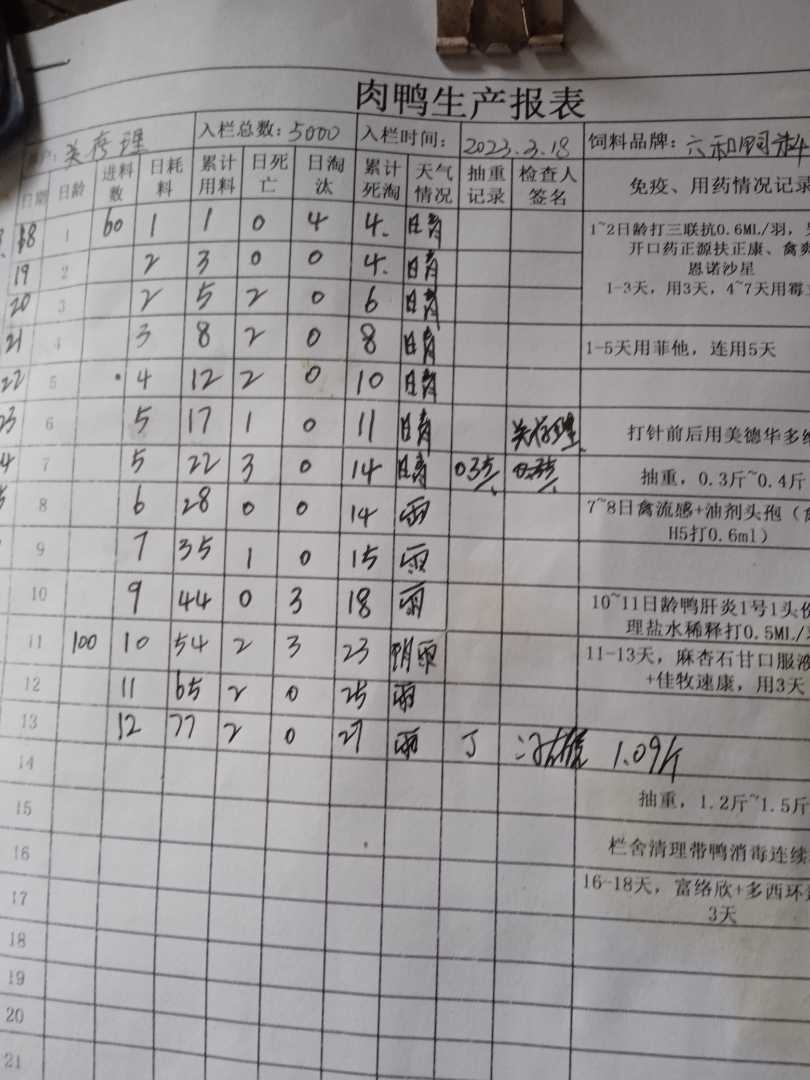 肉鸭生产报表
关存理 入栏总数: 5000 入栏时间: 2023.3.18 饲料品牌: 六和饲料
日期 日龄 进料数 日耗料 累计用料 日死亡 日淘汰 累计死淘 天气情况 抽重记录 检查人签名 免疫、用药情况记录
18 1 60 1 1 0 4 4. 晴 1~2日龄打三联抗0.6ML/羽,
19 2 2 3 0 0 4. 晴 开口药正源扶正康、禽
恩诺沙星
20 3 2 5 2 0 6 晴 1-3天，用3天，4~7天用霉
21 4 3 8 2 0 8 晴 1-5天用菲他，连用5天
22 5 4 12 2 0 10 晴
23 6 5 17 1 0 11 晴 关存理 打针前后用美德华多维
4 7 5 22 3 0 14 晴 0.3 抽重，0.3斤~0.4斤
8 6 28 0 0 14 雨 7~8日禽流感+油剂头孢（
H5打0.6ml）
9 7 35 1 0 15 雨
10 9 44 0 3 18 雨 10~11日龄鸭肝炎1号1头份
理盐水稀释打0.5ML/
11 100 10 54 2 3 23 阴雨 11-13天，麻杏石甘口服液
+佳牧速康，用3天
12 11 65 2 0 25 雨
13 12 77 2 0 27 雨 1.09斤
14
15 抽重，1.2斤~1.5斤
16 栏舍清理带鸭消毒连续
17 16-18天，富络欣+多西环
3天
18
19
20
21